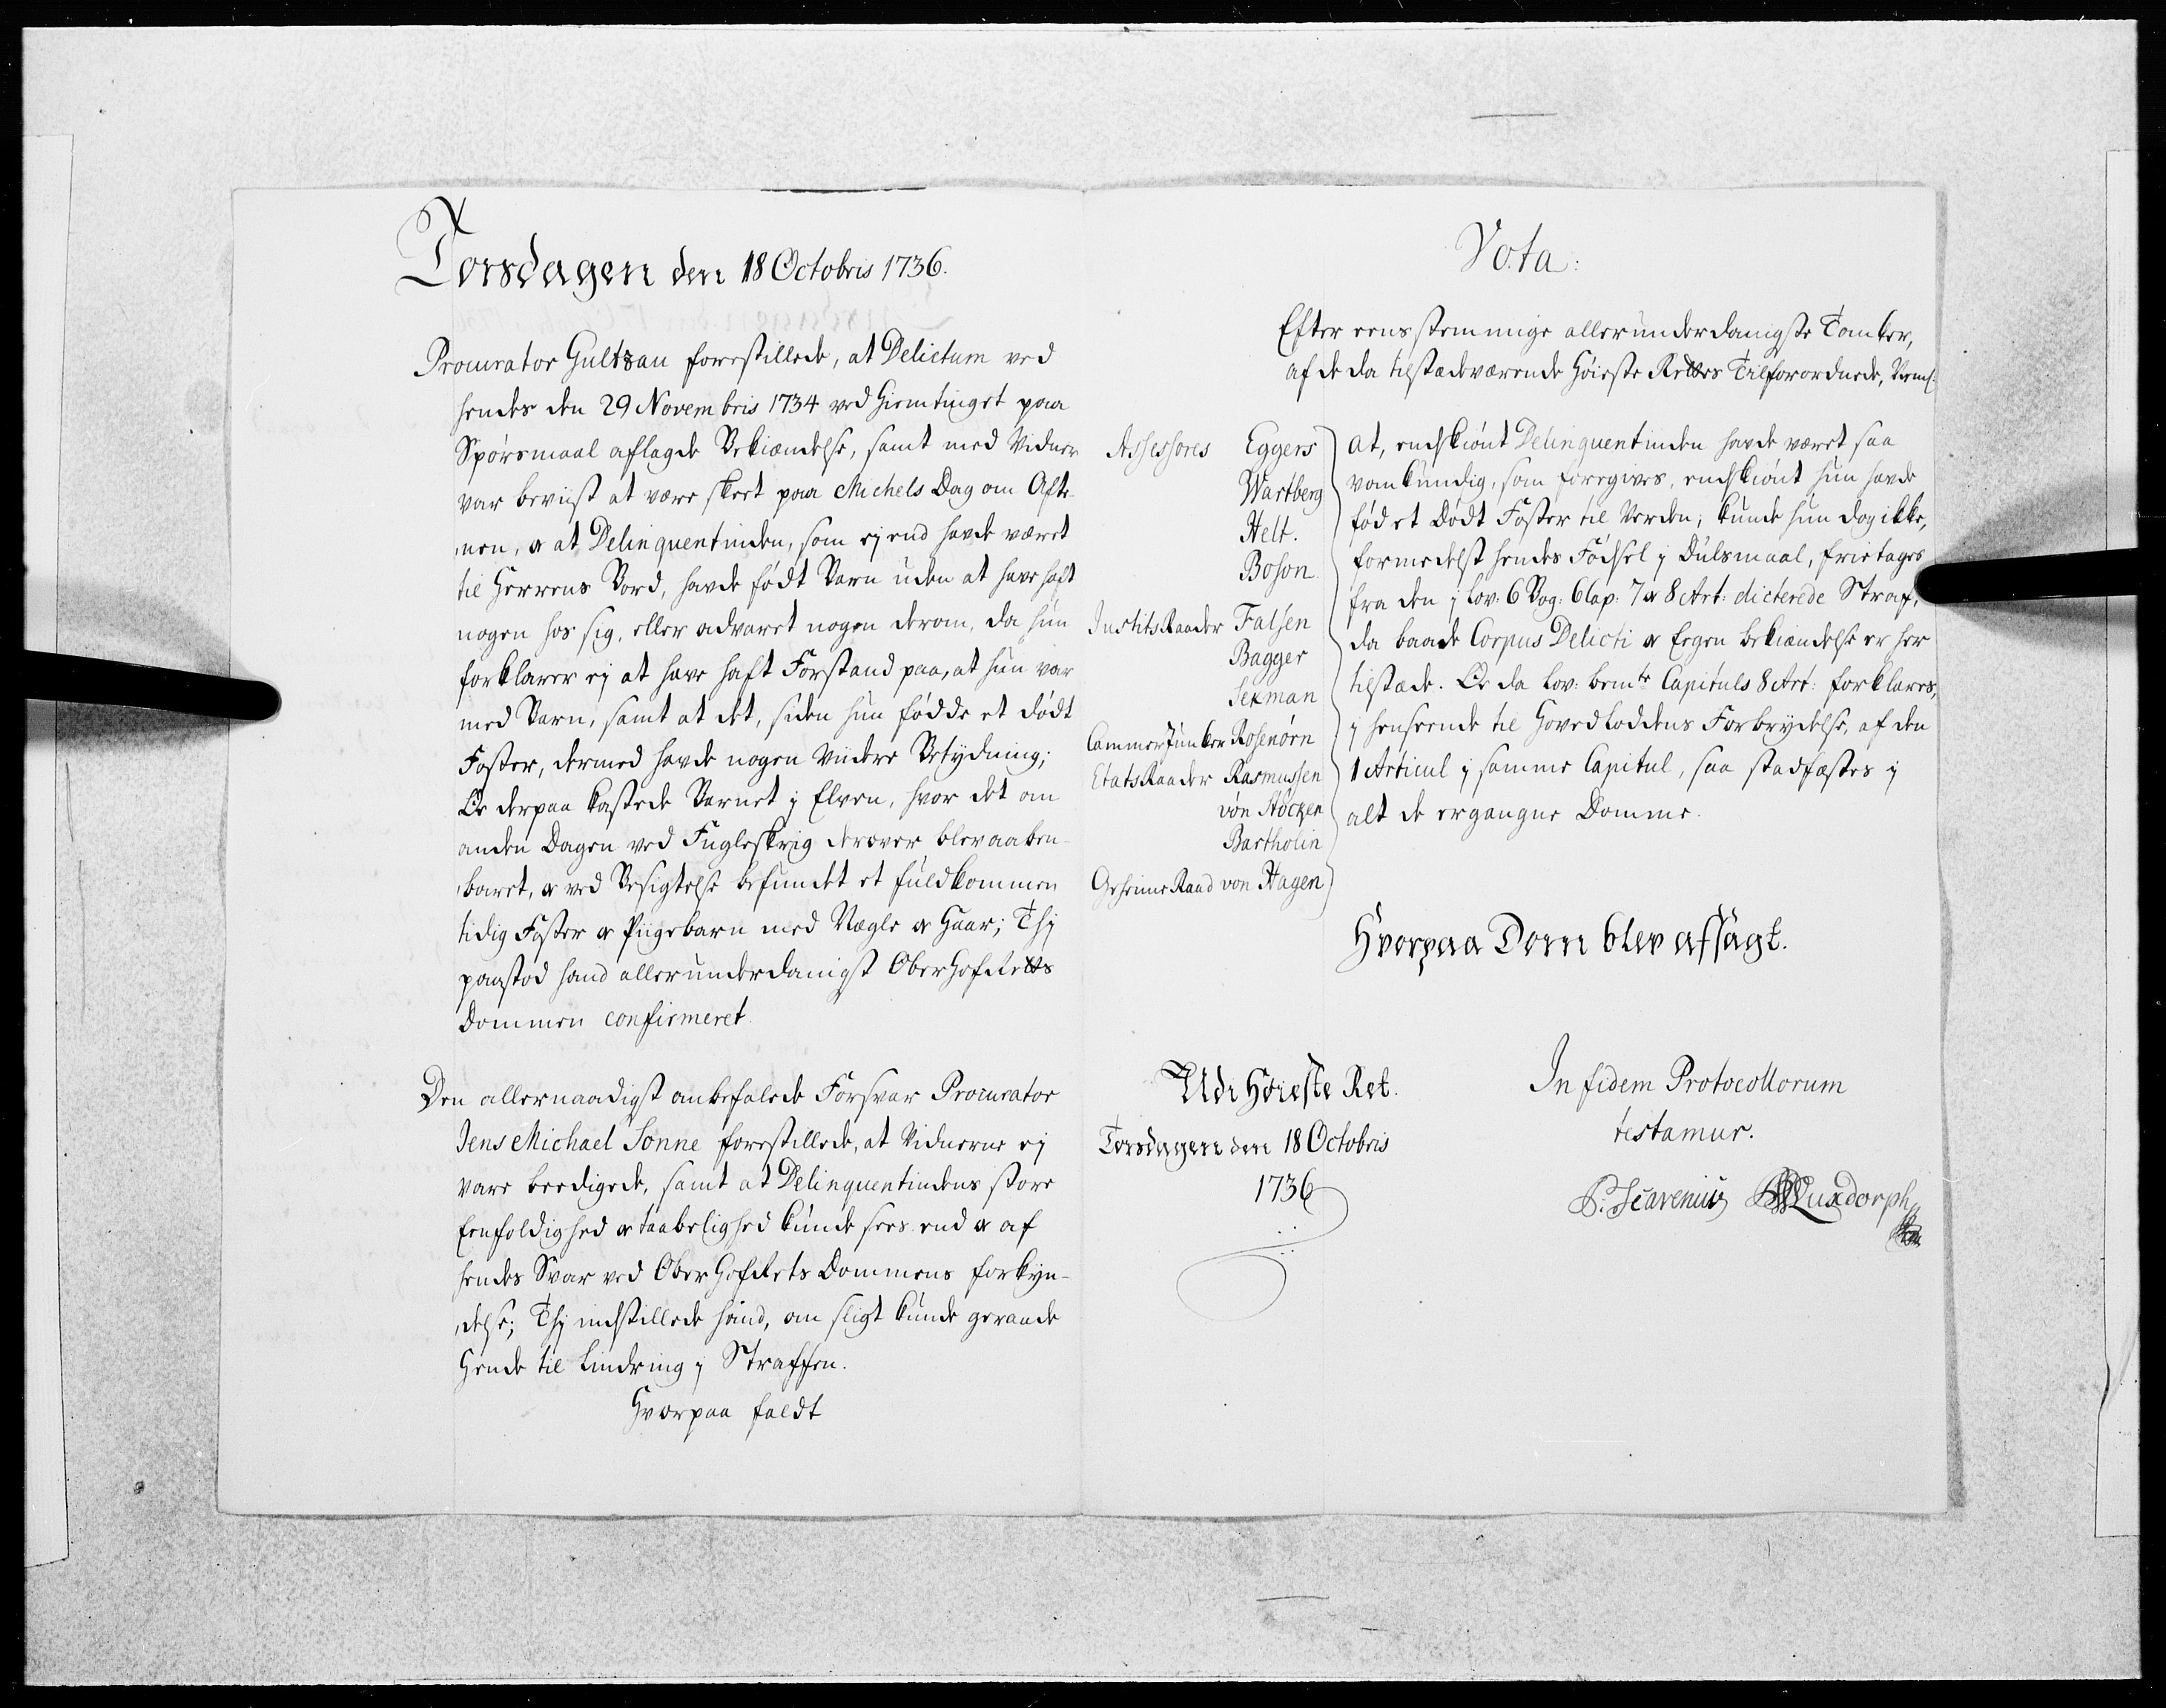 Torsdagen den 18 Octobris 1736.
Procurator Gultzau forestillede, at Delictum ved
hendes den 29 Novembris 1734 ved Hiemtinget paa
Spørsmaal aflagde Bekiændelse, samt med Vidner
var beviist at være skeet paa Michels Dag om Afte-
nen, & at Delinquentinden, som ej end havde været
til Herrens Bord, havde født Barn uden at have haft
nogen hos sig, eller advaret nogen derom, da hun
forklarer ej at have haft Forstand paa, at hun var
med Barn, samt at det, siden hun fødde et dødt
Foster, dermed havde nogen viidere Betydning;
Og derpaa kastede Barnet j Elven, hvor det om
anden Dagen ved Fugleskrig derover blev aaben-
baret, & ved Besigtelse befundet et fuldkommen
tidig Foster & Piigebarn med Nægle & Haar; Thj
paastod hand allerunderdanigst OberHofRetts
Dommen confirmeret.
Den allernaadigst anbefalede Forsvar Procurator
Jens Michael Sonne forestillede, at Vidnerne ej
vare beedigede, samt at Delinquentindens store
Eenfoldighed & taabelighed kunde sees end & af
hendes Svar ved OberHofRets Dommens forkyn-
delse; Thj indstillede hand, om sligt kunde geraade
Hende til Lindring j Straffen.
Hvorpaa faldt
Vota:
Efter eensstemmige allerunderdanigste Tanker,
af de da tilstædeværende Høieste Rettes Tilforordnede, Neml:
Assessores Eggers
Wartberg
Helt.
Boson
JustitsRaader Falsen
Bagger
Sexman
CammerJunker Rosenørn
EtatsRaader Rasmussen
von Støcken
Bartholin
GeheimeRaad von Hagen
at, endskiønt Delinquentinden havde været saa
vankundig, som foregives, endskiønt hun havde
fød et Dødt Foster til Verden, kunde hun dog ikke,
formedelst hendes Fødsel j Dulsmaal, frietages
fra den j Lov: 6 Bog: 6 Cap: 7 & 8 Art: dicterede Straf,
da baade Corpus Delicti & Egen bekiændelse er her
tilstæde. Og da Lov: bemte Capituls 8 Art: forklares,
j henseende til Hovedloddens Forbrydelse, af den
1 Articul j samme Capitul, saa stadfæstes j
alt de ergangne Domme.
Hvorpaa Dom blev afsagt.
Udi Høieste Ret.
Torsdagen den 18 Octobris
1736
In fidem Protocollorum
testamur.
P: Scavenius BWLuxdorph